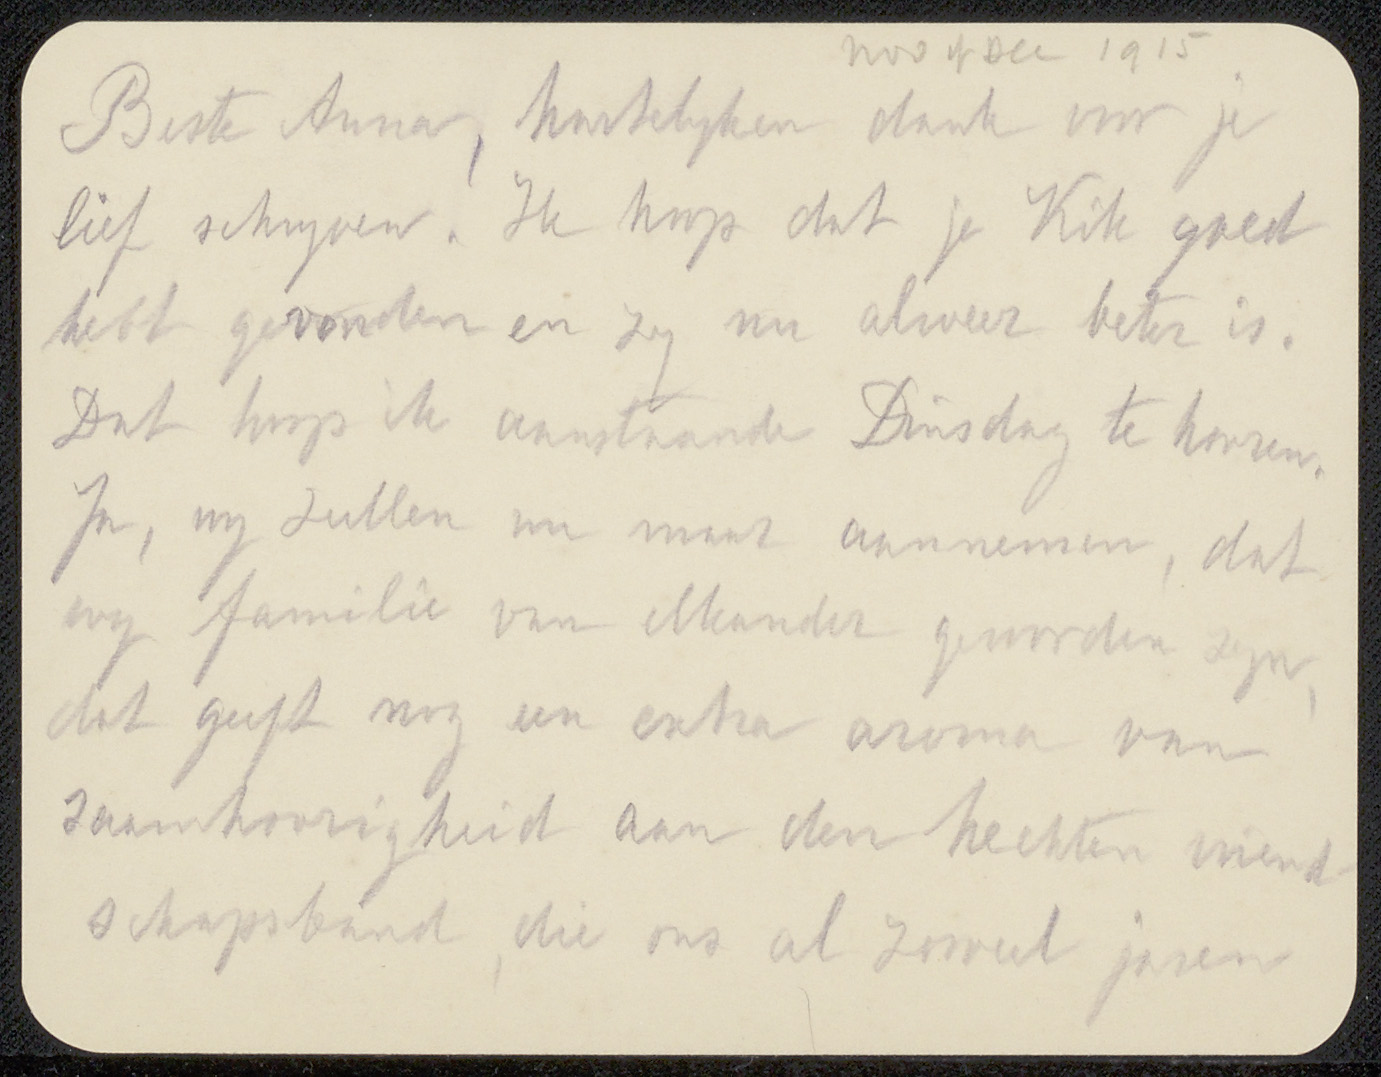 nov of Dec 1915
Beste Anna, hartelyken dank voor je
lief schryven. Ik hoop dat je Kik goed
hebt gevonden en zy nu alweer beter is.
Dat hoop ik aanstaande Dinsdag te hooren.
Ja, wy zullen nu maar aannemen, dat
wy familie van elkander geworden zyn,
dat geeft nog een extra aroma van
zaamhoorigheid aan den hechten vriend
schapsband, die ons al zoveel jaren